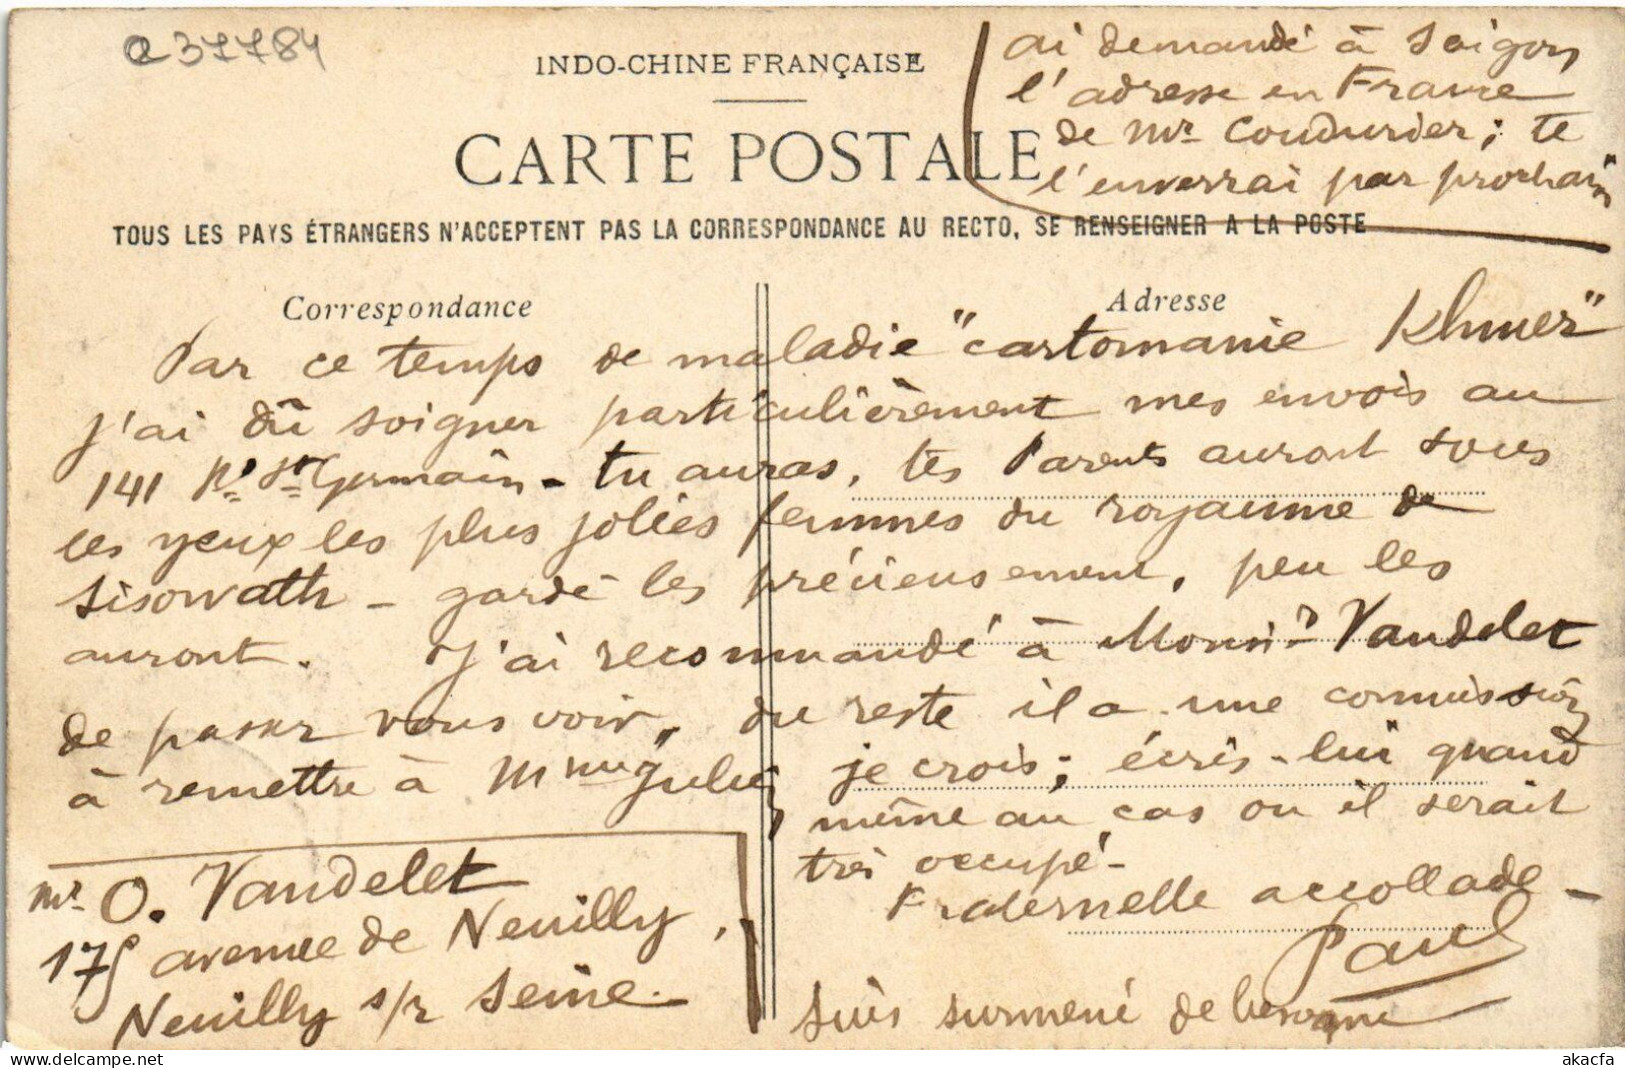 a 37784
INDO-CHINE FRANÇAISE
CARTE POSTALE
ai demandé à Saigon
l'adresse en France
de Mr Coudurier; te
l'enverrai par prochain
TOUS LES PAYS ÉTRANGERS N'ACCEPTENT PAS LA CORRESPONDANCE AU RECTO, SE RENSEIGNER A LA POSTE
Correspondance
Adresse
Par ce temps de maladie "cartomanie Khmer"
j'ai dû soigner particulièrement mes envois au
141 Bd St Germain - tu auras, tes Parents auront sous
les yeux les plus jolies femmes du royaume de
Sisowath - garde les précieusement, peu les
auront. J'ai recommandé à Monsr Vandelet
de passer vous voir, du reste il a une commission
à remettre à Mme Julie, je crois; écris-lui quand
même au cas ou il serait
très occupé -
Fraternelle accollade -
Paul
suis surmené de besogne
Mr O. Vandelet
175 avenue de Neuilly,
Neuilly s/r Seine.
akacfa